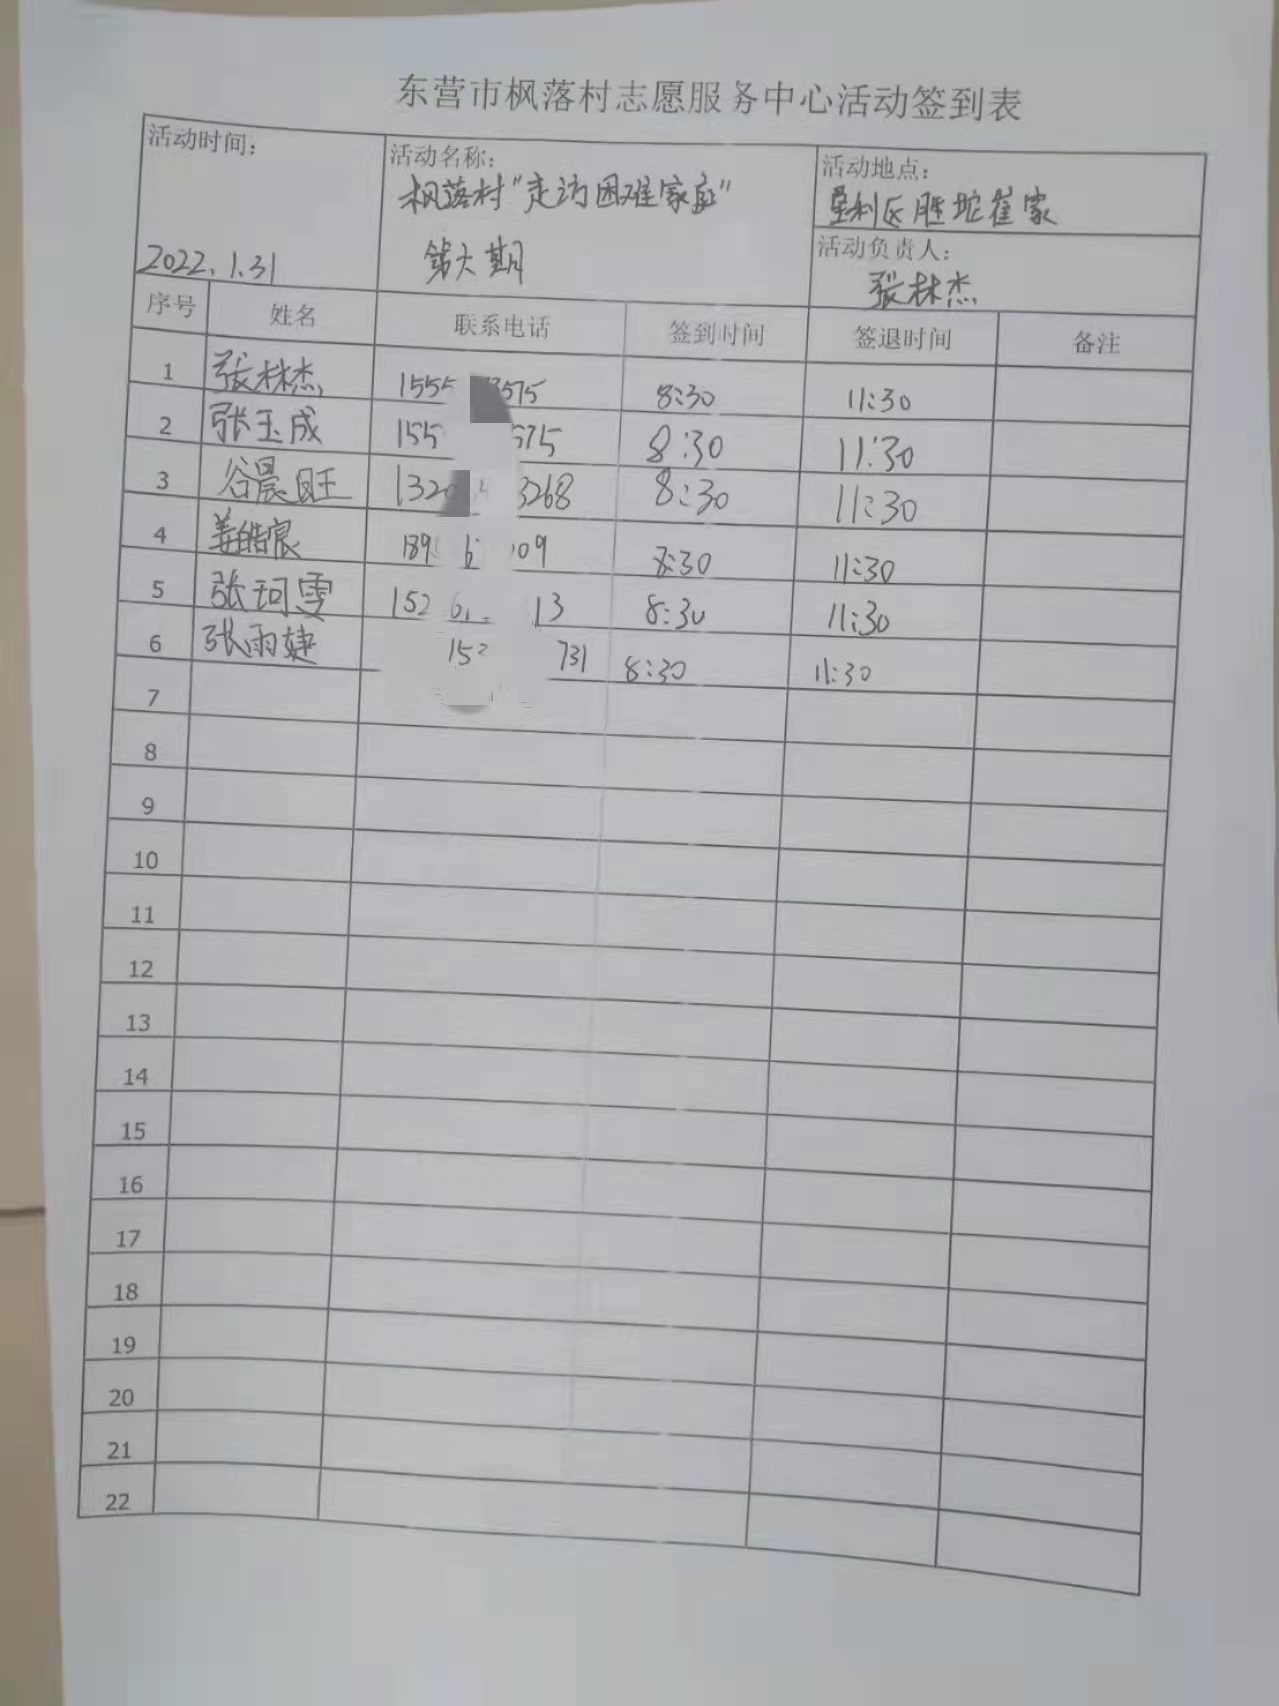 东营市枫落村志愿服务中心活动签到表
活动时间：
2022.1.31
活动名称：
枫落村“走访困难家庭”
第六期
活动地点：
垦利区胜坨崔家
活动负责人：
张林杰
序号 姓名 联系电话 签到时间 签退时间 备注
1 张林杰 1555 3575 8:30 11:30
2 张玉成 155 575 8:30 11:30
3 谷晨旺 132 3268 8:30 11:30
4 姜皓宸 189 6 09 8:30 11:30
5 张珂雯 152 6 13 8:30 11:30
6 张雨婕 15 731 8:30 11:30
7
8
9
10
11
12
13
14
15
16
17
18
19
20
21
22